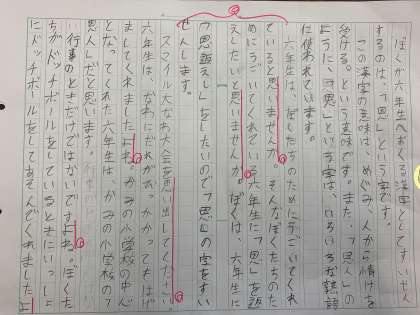 ぼくが六年生へおくる漢字としてすいせん
するのは、「恩」という字です。
「この漢字の意味は、めぐみ、人から情けを
受ける。という意味です。また、「恩人」の
ように、「恩」という字は、いろいろな熟語
に使われています。
六年生は、ぼくたちのためにうごいてくれ
ていると思いませんか。そんなぼくたちのた
めにうごいてくれている六年生に「恩」を返
えしたいと思いませんか。ぼくは、六年生に
「恩返えし」をしたいので「恩」の字をすい
せんします。
スマイル大なわ大会を思い出してください。
六年生は、なわにだれかがかかってもはげ
ましてくれましたよね。かみの小学校の中心
となってくれた六年生は、かみの小学校の「
恩人」だと思います。
行事のときだけではないですよね。ぼくた
ちがドッチボールをしているときにいっしょ
にドッチボールをしてあそんでくれましたよ